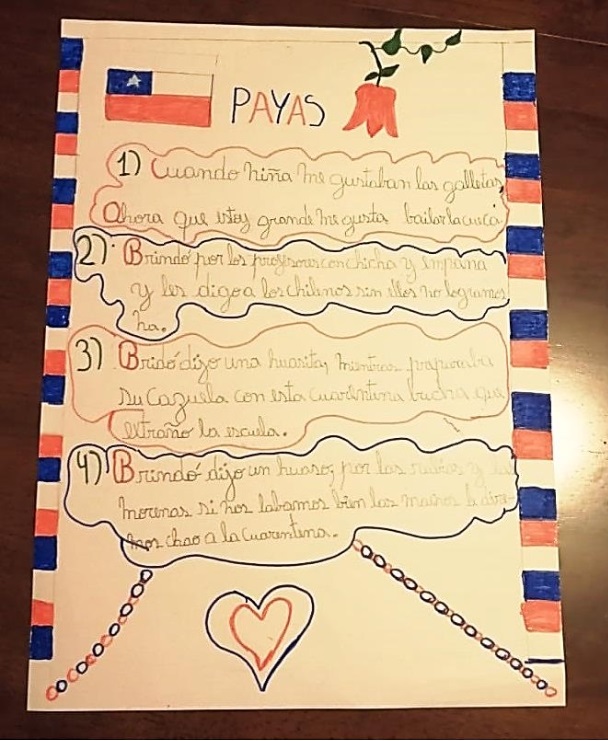 PAYAS
1) Cuando niña me gustaban las galletas
Ahora que estoy grande me gusta bailar la cueca
2) Brindó por los profesores con chicha y empana
y les digo a los chilenos sin ellos no logramos
na.
3) Bridó dijo una huasita, mientras praparaba
su cazuela con esta cuarentena bucha que
extraño la escuela.
4) Brindó dijo un huaso; por las rubias y las
morenas si nos labamos bien las manos le dire-
mos chao a la cuarentena.